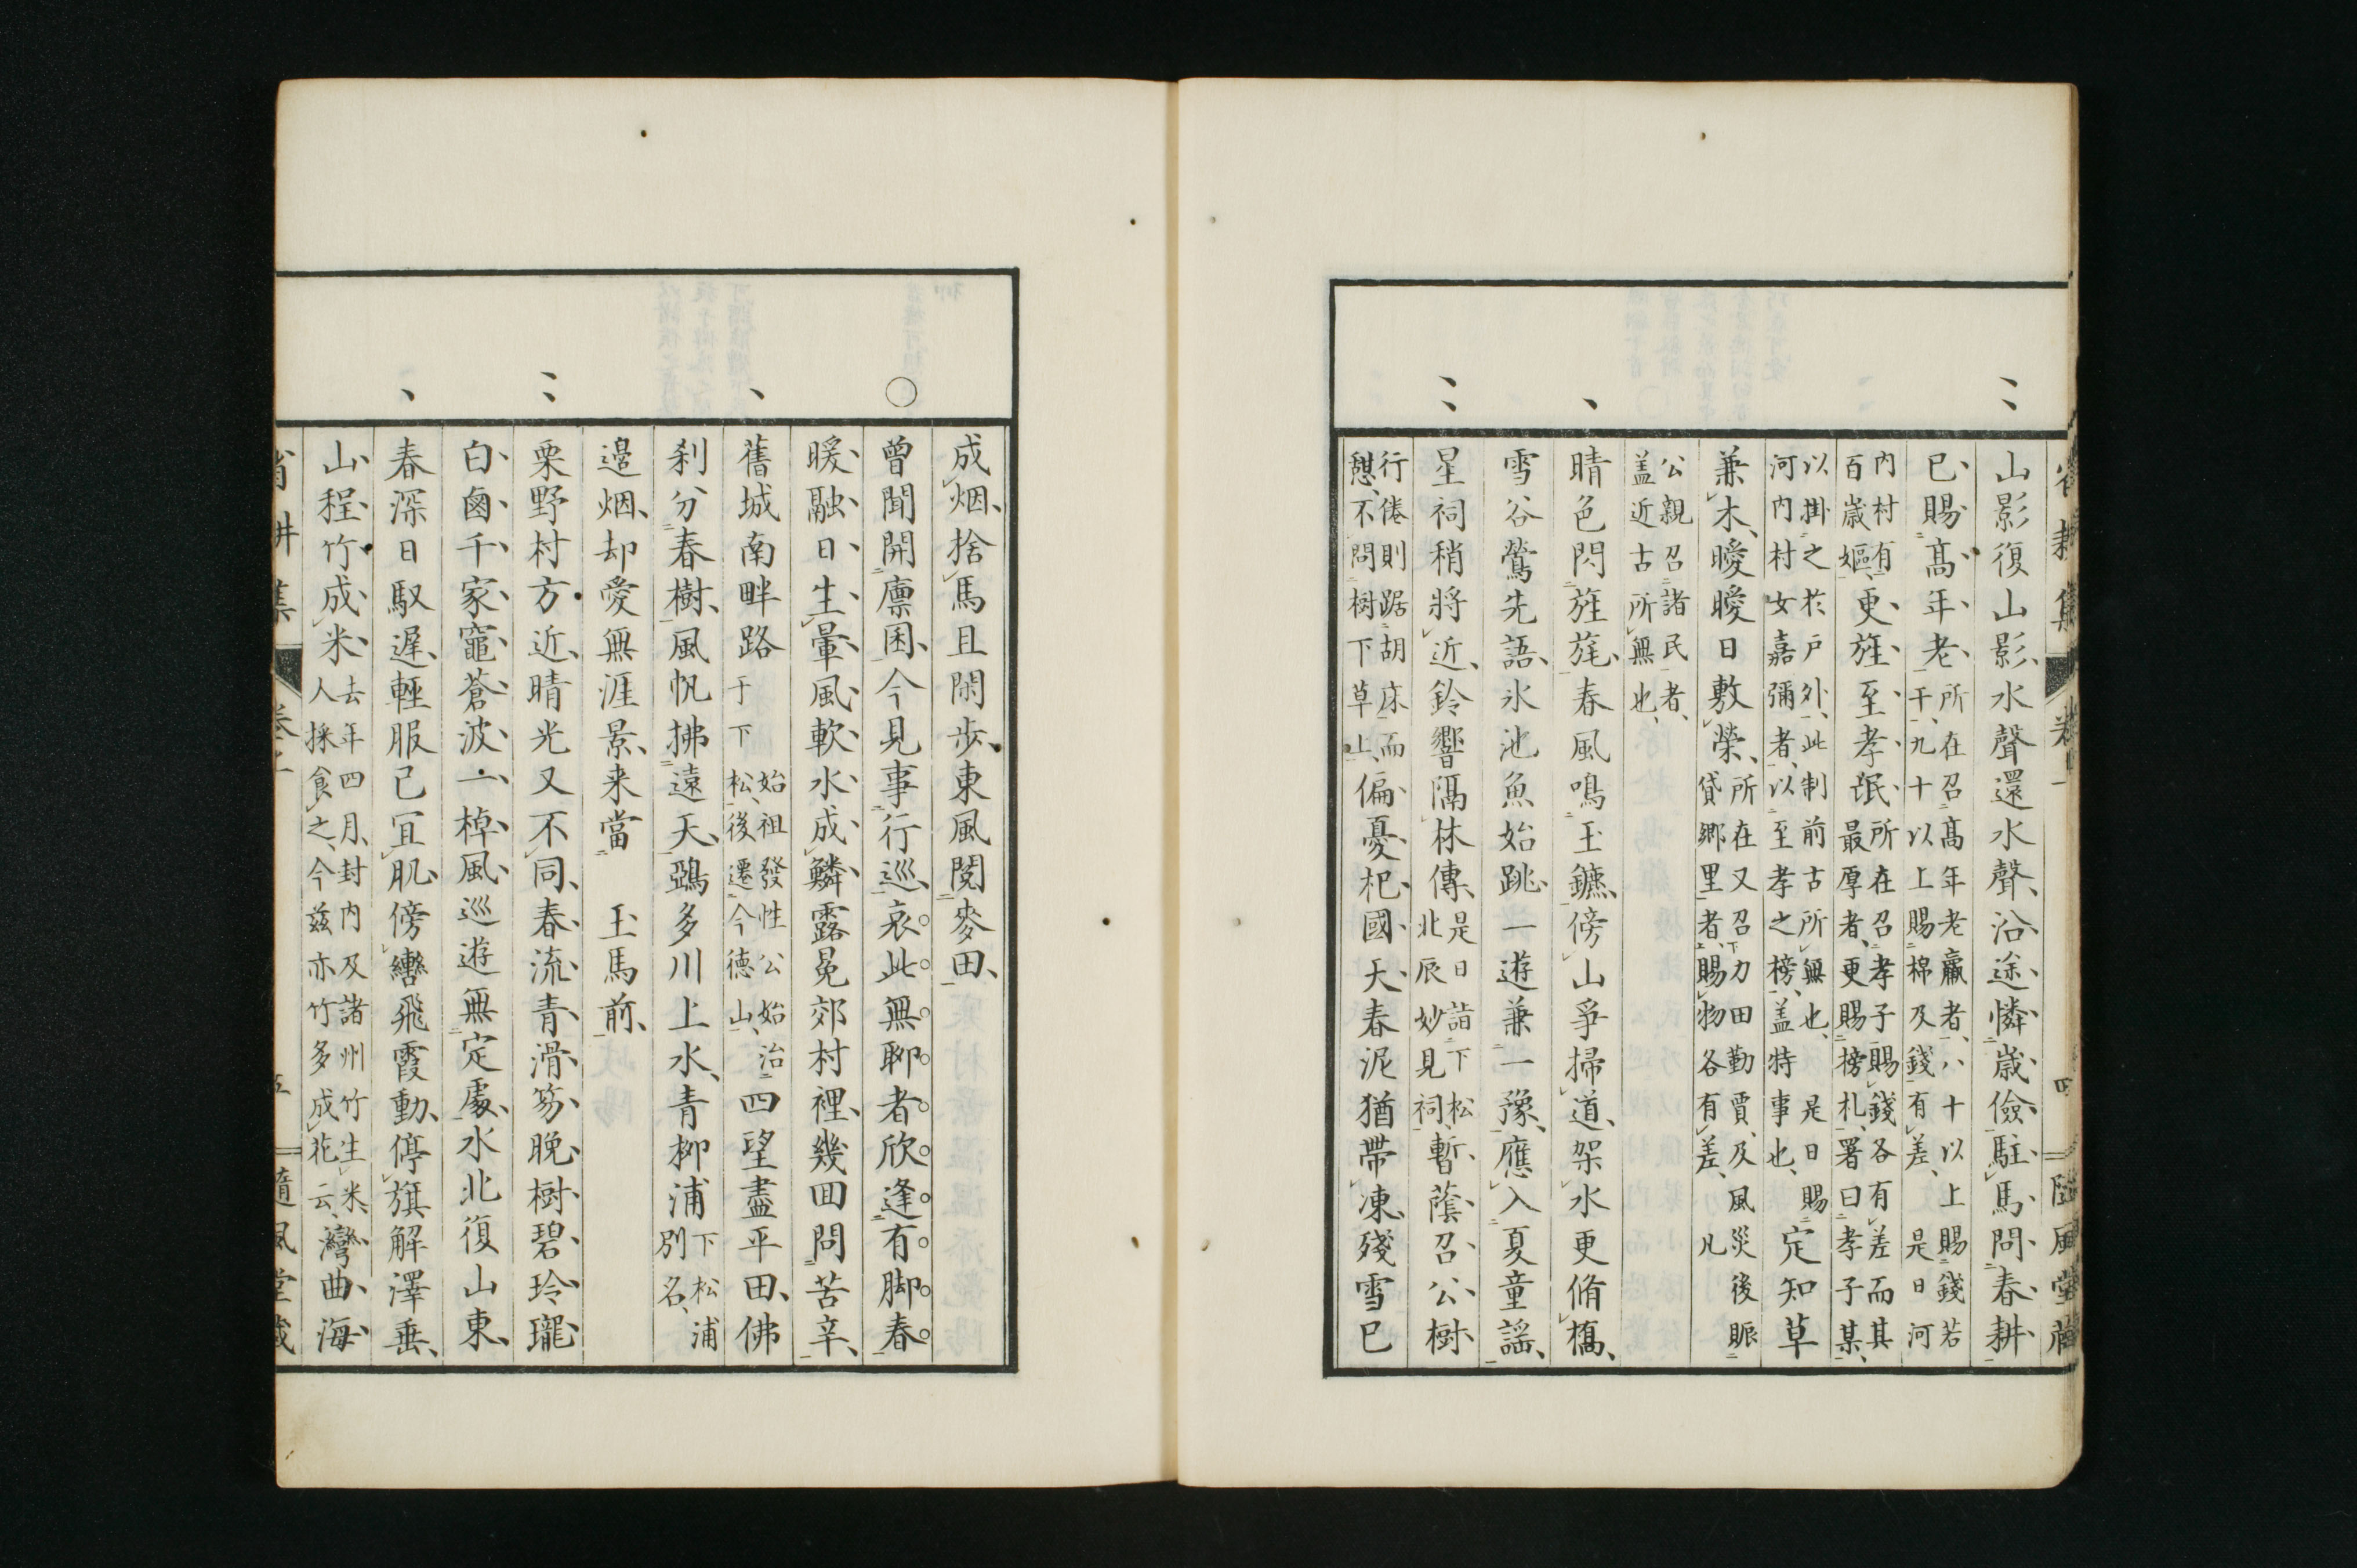 省耕集 卷一 四 隨風堂藏
山影復山影、水聲還水聲、沿途憐歳儉、駐馬問春耕
已賜高年老、所在召高年老羸者、八十以上賜錢若
干、九十以上賜棉及錢有差、是日河
內村有
百歳嫗、更旌至孝氓、所在召孝子賜錢各有差而其
最厚者、更賜榜札、署曰孝子某、
以掛之於戸外、此制前古所無也、是日賜
河内村女嘉彌者、以至孝之榜、盖特事也、定知草
兼木、曖曖日敷榮、所在又召力田勤賈、及風災後賑
貸鄉里者、賜物各有差、凡
公親召諸民者、
盖近古所無也、
晴色閃旌旄、春風鳴玉鑣、傍山爭掃道、架水更脩橋、
雪谷鶯先語、氷池魚始跳、一遊兼一豫、應入夏童謡、
星祠稍將近、鈴響隔林傳、是日詣下松
北辰妙見祠、暫蔭召公樹
行倦則踞胡床而
憇、不問樹下草上、偏憂杞國天、春泥猶帶凍、殘雪已
成烟、捨馬且閑歩、東風閱麥田、
曾聞開廩囷、今見事行巡、哀此無聊者、欣逢有脚春
暖融日生暈、風軟水成鱗、露冕郊村裡、幾回問苦辛、
舊城南畔路 始祖發性公始治
于下松、後遷今德山、四望盡平田、佛
刹分春樹、風帆拂遠天、鵶多川上水、青柳浦 下松浦
別名、
邉烟、却愛無涯景、来當 玉馬前、
栗野村方近、晴光又不同、春流青滑笏、晩樹碧玲瓏
白鹵千家竈、蒼波一棹風、巡遊無定處、水北復山東、
春深日馭遅、輕服已冝肌、傍轡飛霞動、停旗解澤垂、
山程竹成米、去年四月、封内及諸州竹生米、
人採食之、今茲亦竹多成花云、灣曲海
省耕集 卷一 五 隨風堂藏